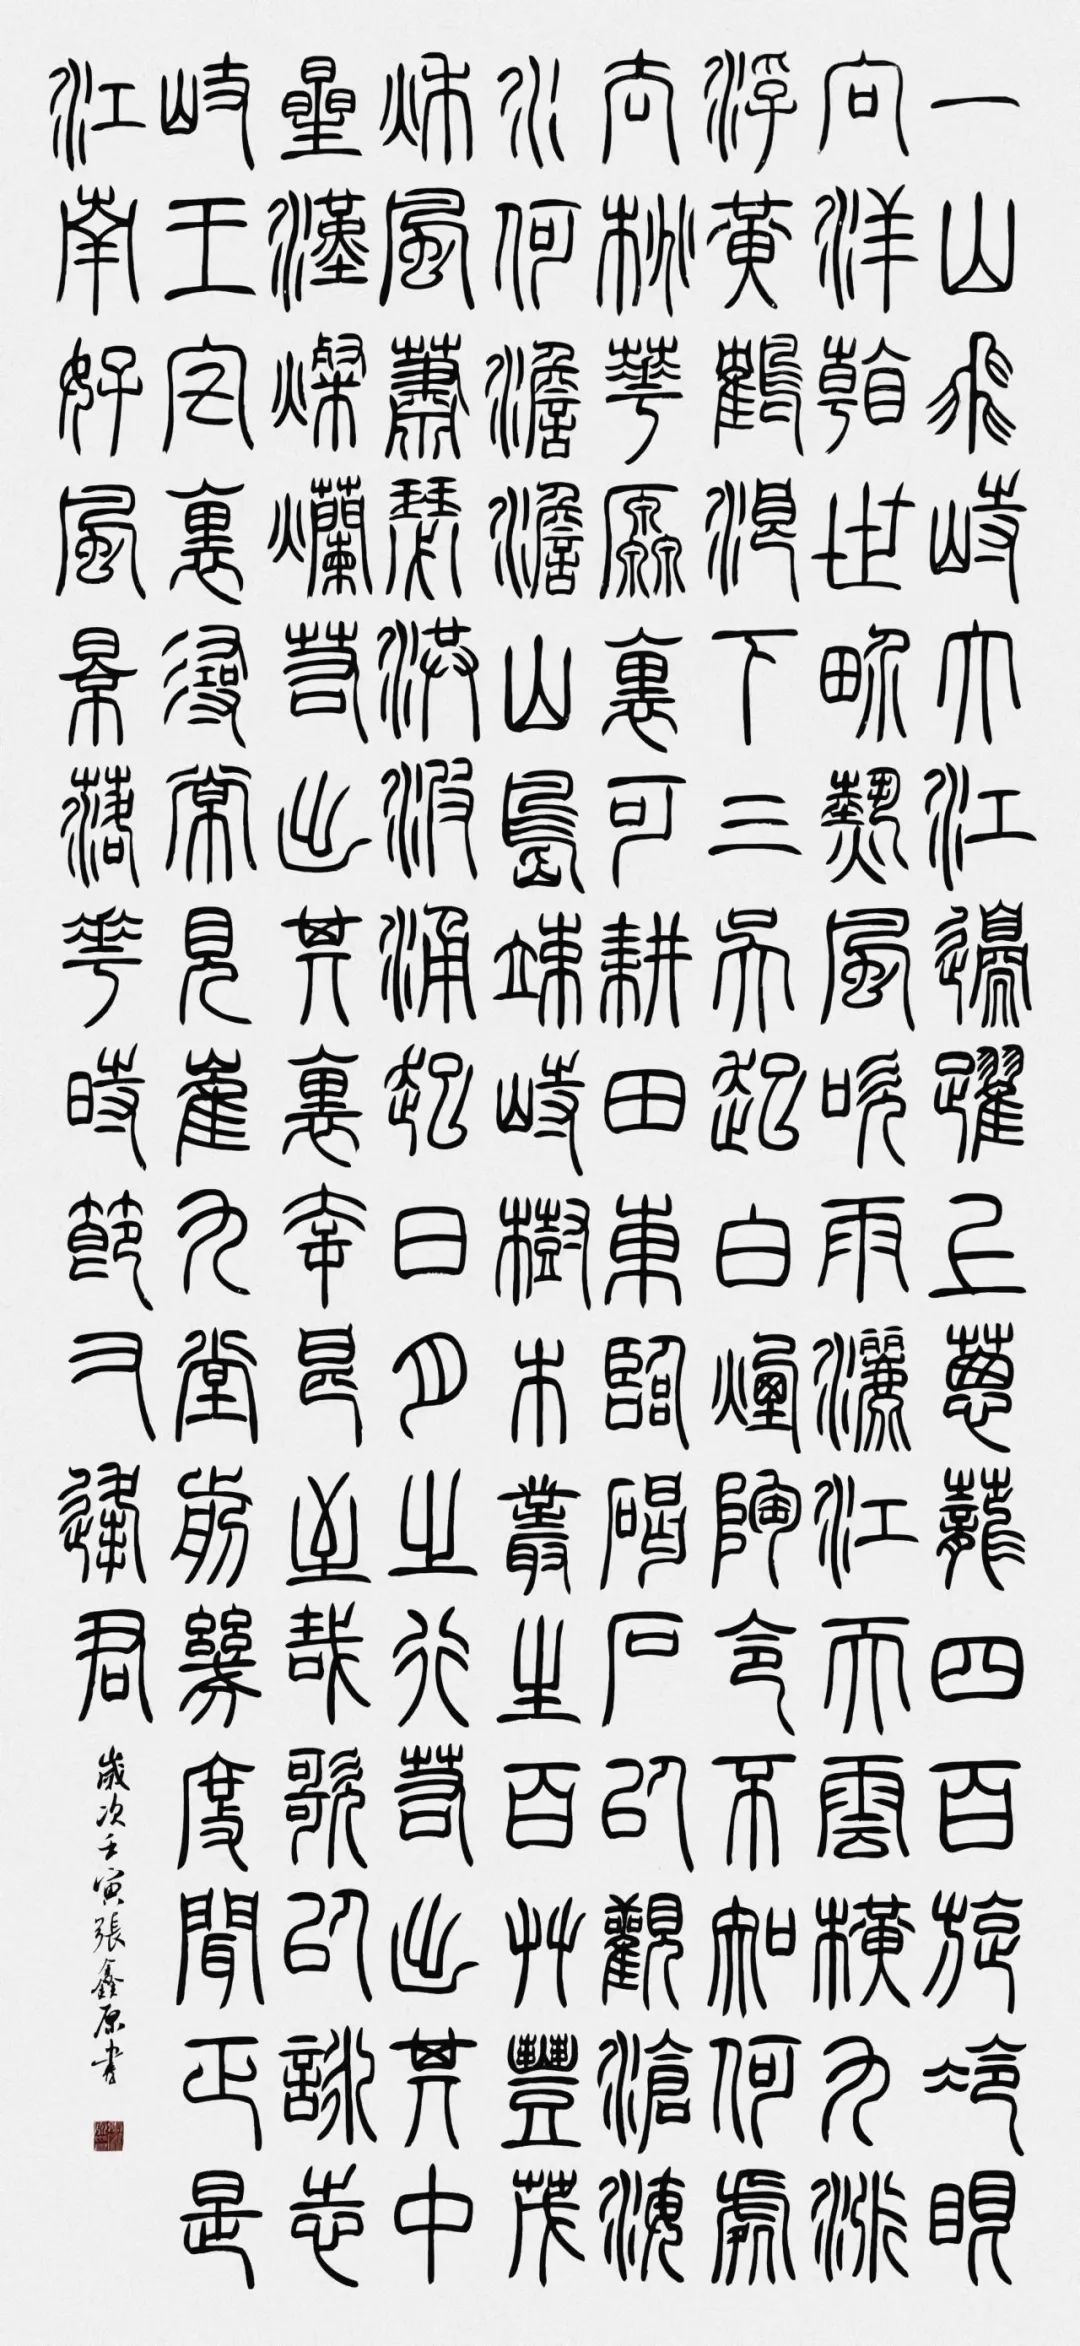 一山飛峙大江邊躍上蔥蘢四百旋冷眼
向洋看世界熱風吹雨灑江天雲橫九派
浮黃鶴浪下三吳起白煙陶令不知何處
去桃華源裏可耕田東臨碣石以觀滄海
水何澹澹山島竦峙樹木叢生百艸豐茂
秋風蕭瑟洪波涌起日月之行若出其中
星漢燦爛若出其裏幸甚至哉歌以詠志
岐王宅裏尋常見崔九堂前幾度聞正是
江南好風景落華時節又逢君
歲次壬寅張鑫原書